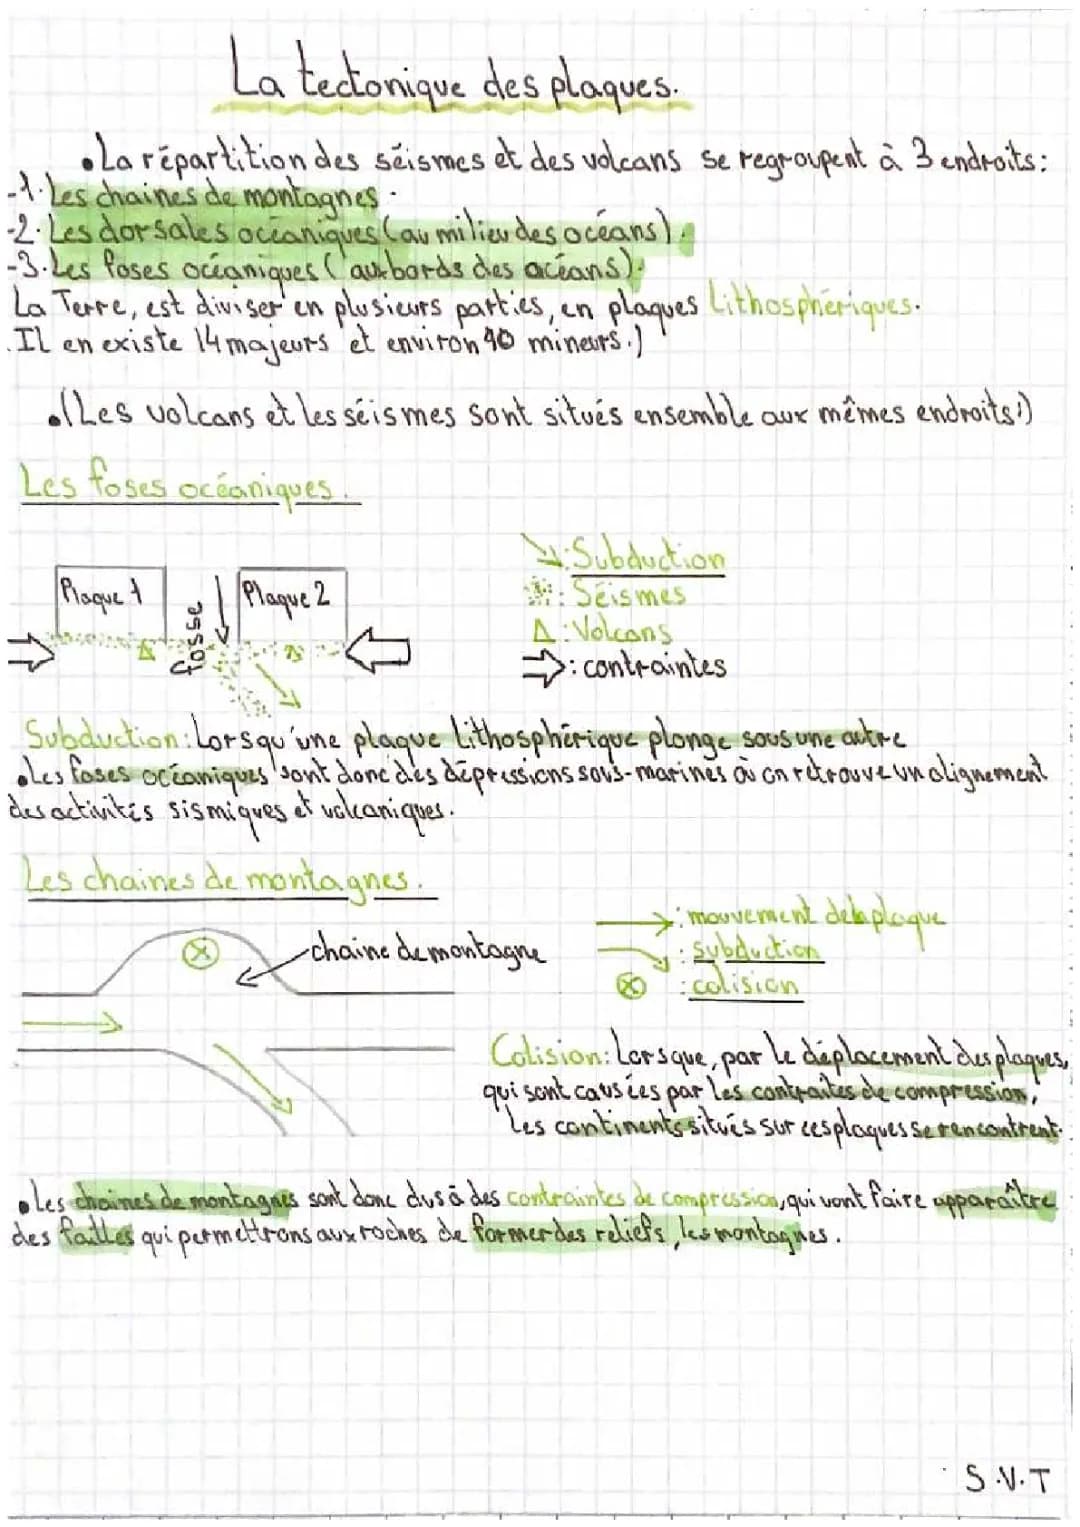 La tectonique des plaques.
•La répartition des séismes et des volcans se regroupent à 3 endroits:
-1. Les chaines de montagnes.
-2. Les dorsales océaniques (au milieu des océans).
-3. Les foses océaniques (aux bords des océans).
La Terre, est diviser en plusieurs parties, en plaques Lithosphériques.
Il en existe 14 majeurs et environ 40 mineurs.)
•(Les volcans et les séismes sont situés ensemble aux mêmes endroits!)
Les foses océaniques.
Plaque 1
fosse
Plaque 2
: Subduction
: Séismes
: Volcans
: contraintes
Subduction: Lorsqu'une plaque Lithosphérique plonge sous une autre
•Les foses océaniques sont donc des dépressions sous-marines où on retrouve un alignement
des activités sismiques et volcaniques.
Les chaines de montagnes.
chaine de montagne
: mouvement de la plaque
: subduction
: colision
Colision: Lorsque, par le déplacement des plaques,
qui sont causées par les contraites de compression,
Les continents situés sur ces plaques se rencontrent.
•Les chaines de montagnes sont donc dus à des contraintes de compression, qui vont faire apparaître
des failles qui permettrons aux roches de former des reliefs, les montagnes.
S.V.T